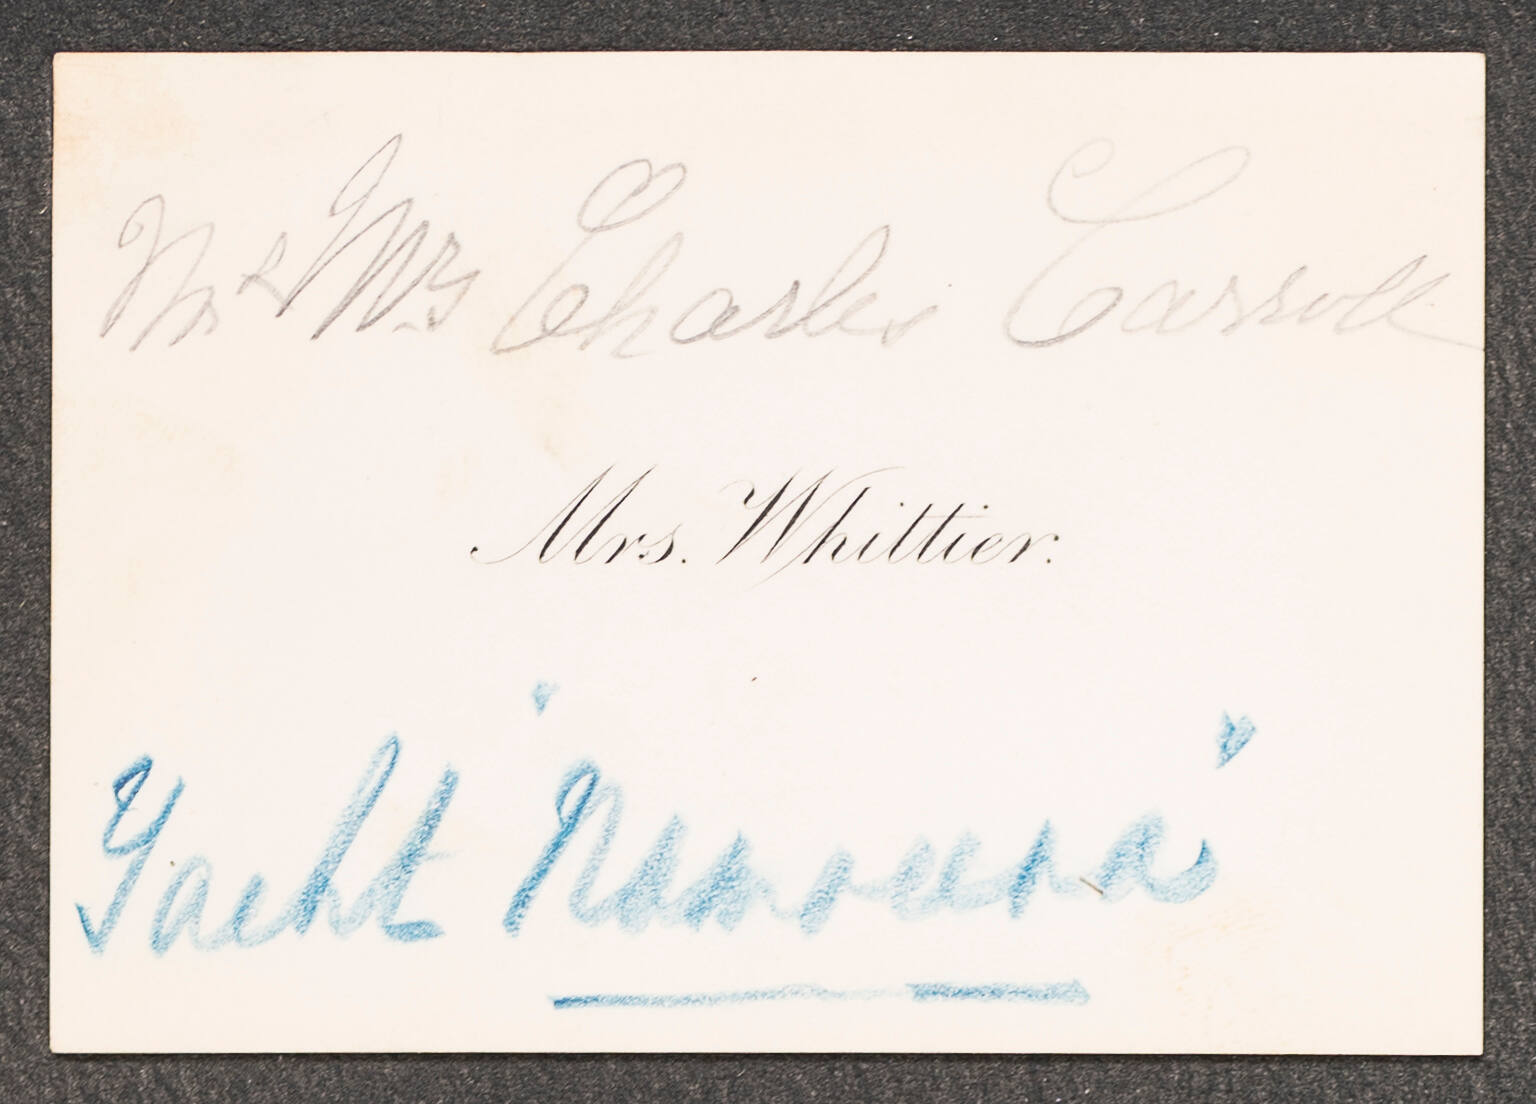 Mr & Mrs Charles Carroll
Mrs. Whittier.
Yacht "